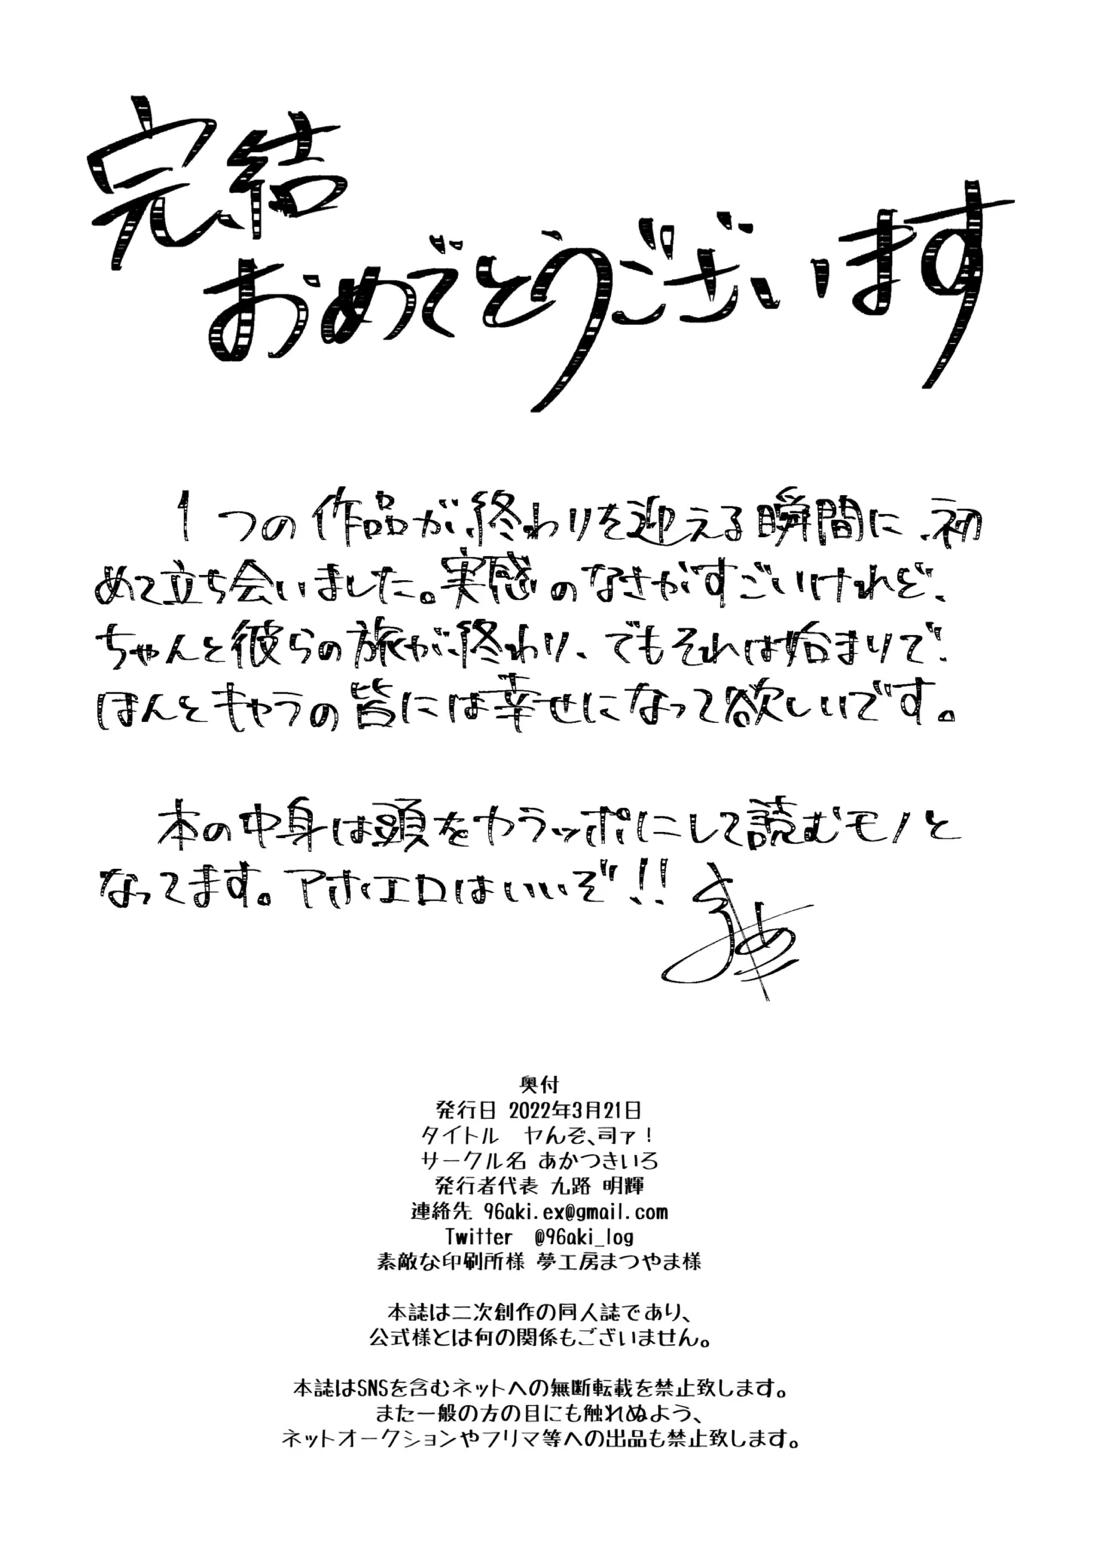 完結
おめでとうございます
1つの作品が、終わりを迎える瞬間に、初
めて立ち会いました。実感のなさがすごいけれど、
ちゃんと彼らの旅が、終わり、でもそれは始まりで、
ほんとキャラの皆には幸せになって欲しいです。
本の中身は頭をカラッポにして読むモノと
なってます。アホエロはいいぞ!!
奥付
発行日 2022年3月21日
タイトル ヤんぞ、司ァ!
サークル名 あかつきいろ
発行者代表 九路 明輝
連絡先 96aki.ex@gmail.com
Twitter @96aki_log
素敵な印刷所様 夢工房まつやま様
本誌は二次創作の同人誌であり、
公式様とは何の関係もございません。
本誌はSNSを含むネットへの無断転載を禁止致します。
また一般の方の目にも触れぬよう、
ネットオークションやフリマ等への出品も禁止致します。